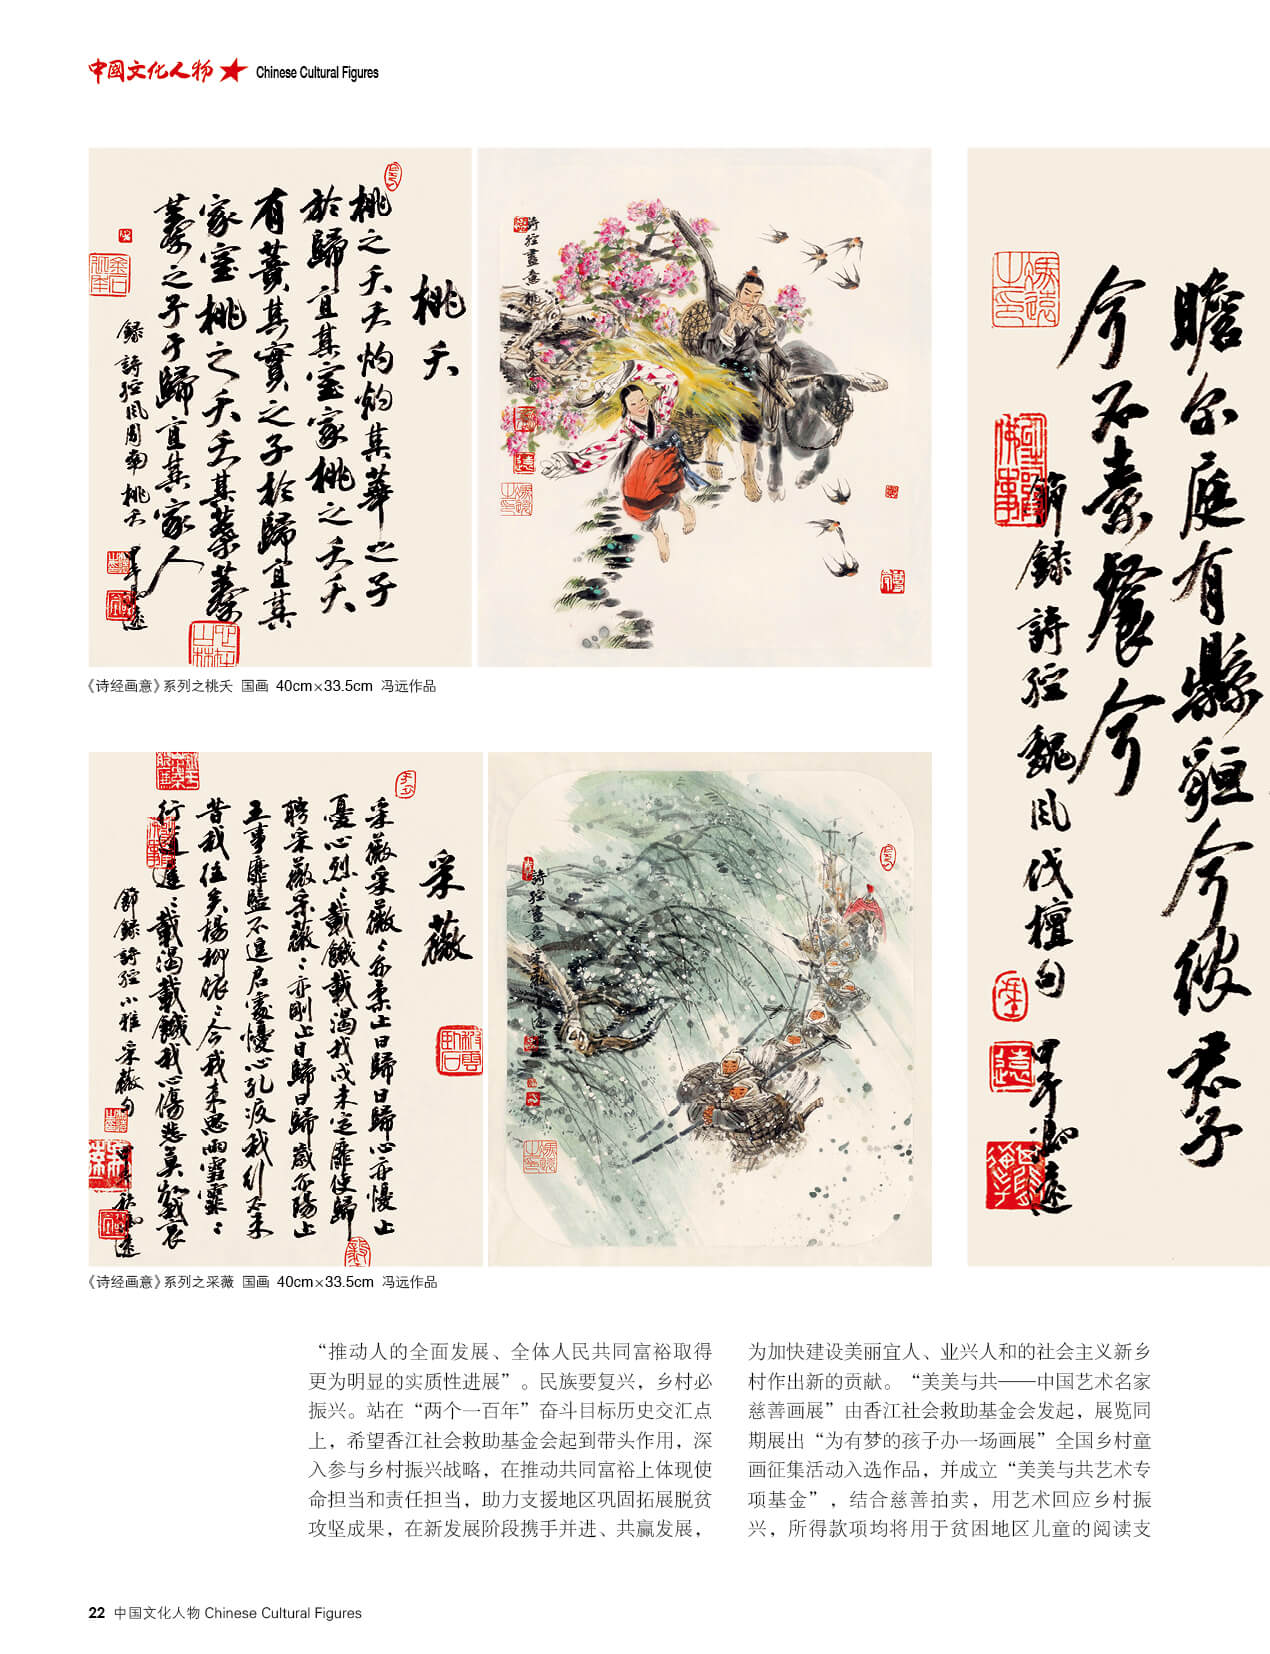 中国文化人物 ★ Chinese Cultural Figures
桃夭
桃之夭夭灼灼其華之子
於歸宜其室家桃之夭夭
有蕡其實之子於歸宜其
家室桃之夭夭其葉蓁
蓁之子于歸宜其家人
錄詩經風周南桃夭
詩經畫意桃
《诗经画意》系列之桃夭 国画 40cm×33.5cm 冯远作品
采薇
采薇采薇薇亦柔止曰歸曰歸心亦憂止
憂心烈烈載饑載渴我戍未定靡使歸
聘采薇采薇薇亦剛止曰歸曰歸歲亦陽止
王事靡盬不遑启處憂心孔疚我行不來
昔我往矣楊柳依依今我来思雨雪霏霏
行道遲遲載渴載饑我心傷悲莫知我哀
節錄詩經小雅采薇句
詩經畫意采薇
《诗经画意》系列之采薇 国画 40cm×33.5cm 冯远作品
瞻尔庭有縣貆兮彼君子
兮不素餐兮
節録詩經魏風伐檀句
“推动人的全面发展、全体人民共同富裕取得
更为明显的实质性进展”。民族要复兴，乡村必
振兴。站在“两个一百年”奋斗目标历史交汇点
上，希望香江社会救助基金会起到带头作用，深
入参与乡村振兴战略，在推动共同富裕上体现使
命担当和责任担当，助力支援地区巩固拓展脱贫
攻坚成果，在新发展阶段携手并进、共赢发展，
为加快建设美丽宜人、业兴人和的社会主义新乡
村作出新的贡献。“美美与共——中国艺术名家
慈善画展”由香江社会救助基金会发起，展览同
期展出“为有梦的孩子办一场画展”全国乡村童
画征集活动入选作品，并成立“美美与共艺术专
项基金”，结合慈善拍卖，用艺术回应乡村振
兴，所得款项均将用于贫困地区儿童的阅读支
22 中国文化人物 Chinese Cultural Figures